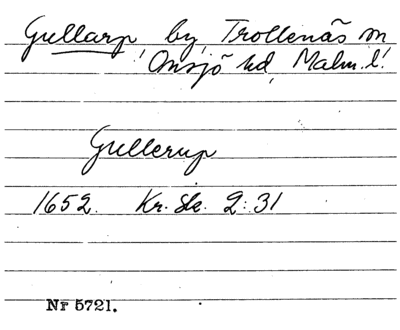 Gullarp by, Trollenäs sn
Onsjö hd, Malm. l.
Gullerup
1652. Kr. Sk. 2:31
Nr 5721.